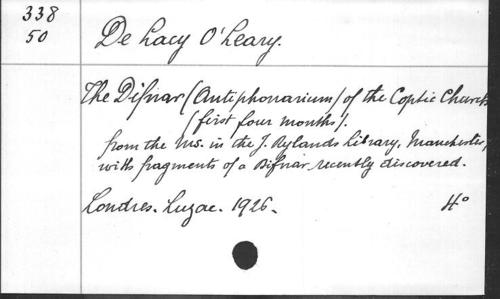 338
50
De Lacy O'Leary.
The Difnar (Antiphonarium) of the Coptic Church
(first four months).
from the ms. in the J. Rylands Library, Manchester,
with fragments of a Difnar recently discovered.
Londres. Luzac. 1926.
4°